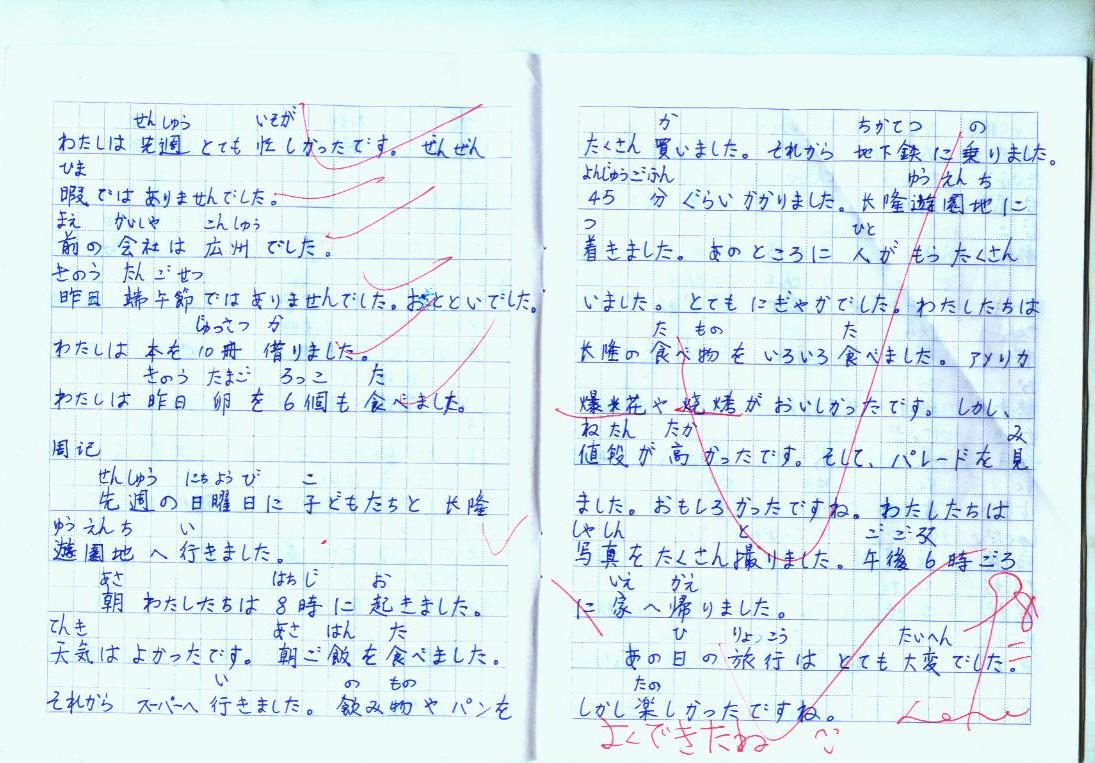 せんしゅう いそが
わたしは 先週 とても 忙しかったです。 ぜんぜん
ひま
暇ではありませんでした。
まえ かいしゃ こんしゅう
前の会社は広州でした。
きのう たんごせつ
昨日 端午節ではありませんでした。おとといでした。
じゅっさつ か
わたしは 本を 10冊 借りました。
きのう たまご ろっこ た
わたしは 昨日 卵を 6個も 食べました。
周记
せんしゅう にちようび こ
先週の日曜日に 子どもたちと 长隆
ゆうえんち い
遊園地へ行きました。
あさ はちじ お
朝 わたしたちは 8時に 起きました。
てんき あさ はん た
天気は よかったです。 朝ご飯を食べました。
い の もの
それから スーパーへ行きました。 飲み物や パンを
か ちかてつ の
たくさん 買いました。 それから 地下鉄に乗りました。
よんじゅうごふん ゆうえんち
45 分 ぐらい かかりました。长隆遊園地に
つ ひと
着きました。 あのところに 人が もう たくさん
いました。 とても にぎやかでした。わたしたちは
た もの た
长隆の 食べ物を いろいろ 食べました。 アメリカ
爆米花や 烧烤が おいしかったです。 しかし、
ねだん たか み
値段が 高かったです。そして、パレードを 見
ました。おもしろかったですね。 わたしたちは
しゃしん と ごご
写真をたくさん撮りました。午後 6時ごろ
いえ かえ
に 家へ帰りました。
ひ りょこう たいへん
あの日の旅行は とても 大変でした。
たの
しかし楽しかったですね。
よくできたね